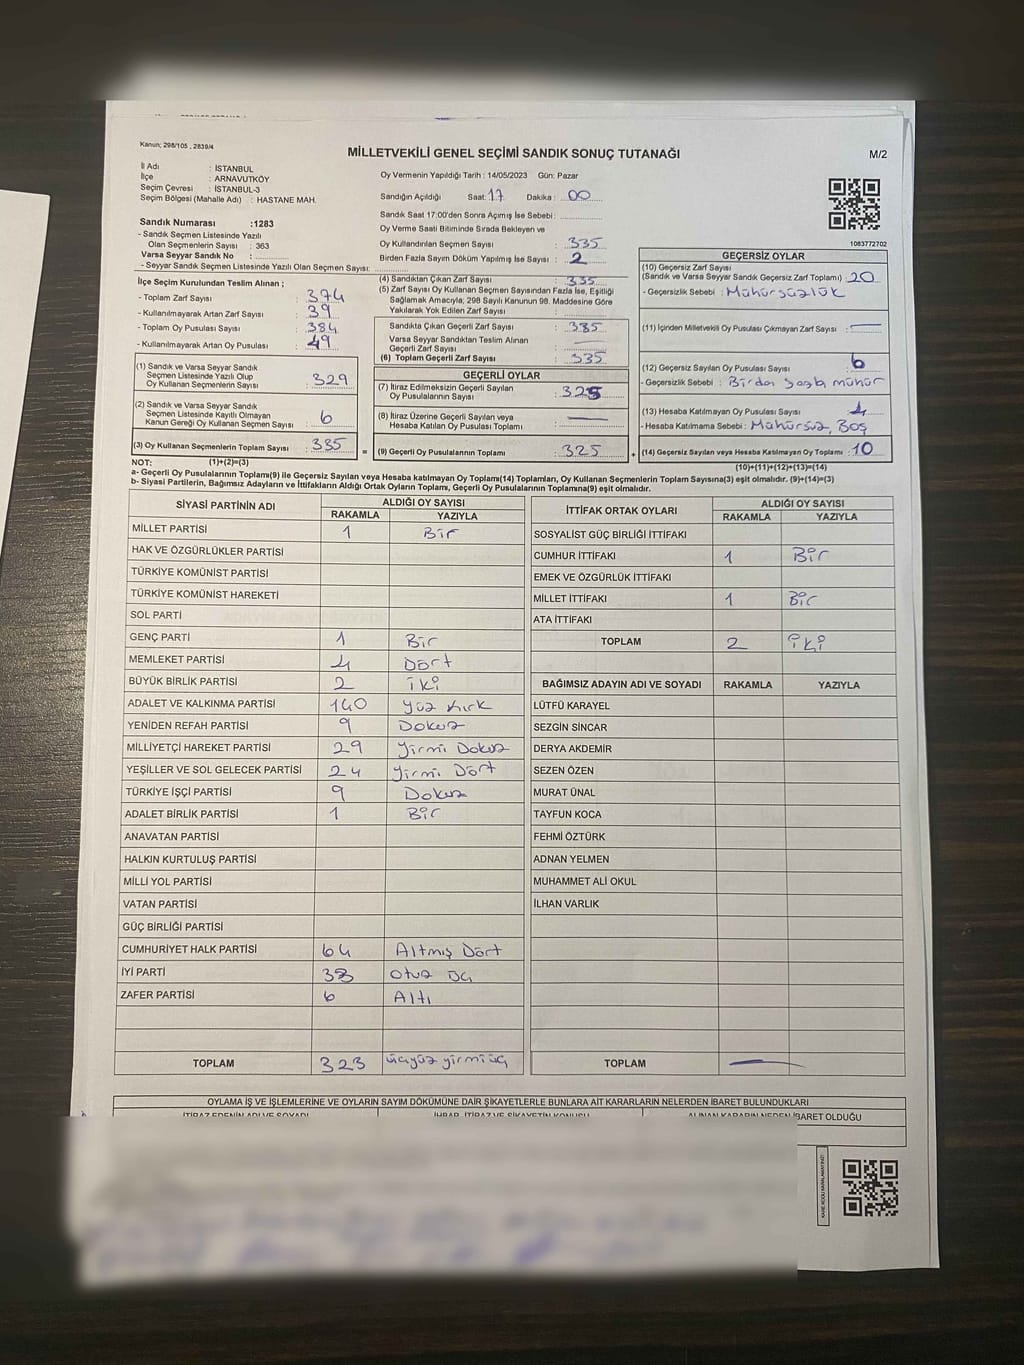 Kanun; 298/105 , 2839/4
MİLLETVEKİLİ GENEL SEÇİMİ SANDIK SONUÇ TUTANAĞI
M/2
İl Adı : İSTANBUL
İlçe : ARNAVUTKÖY
Seçim Çevresi : İSTANBUL-3
Seçim Bölgesi (Mahalle Adı) : HASTANE MAH.
Sandık Numarası :1283
- Sandık Seçmen Listesinde Yazılı
Olan Seçmenlerin Sayısı : 363
Varsa Seyyar Sandık No :
- Seyyar Sandık Seçmen Listesinde Yazılı Olan Seçmen Sayısı:
İlçe Seçim Kurulundan Teslim Alınan ;
- Toplam Zarf Sayısı : 374
- Kullanılmayarak Artan Zarf Sayısı : 39
- Toplam Oy Pusulası Sayısı : 384
- Kullanılmayarak Artan Oy Pusulası : 49
(1) Sandık ve Varsa Seyyar Sandık
Seçmen Listesinde Yazılı Olup
Oy Kullanan Seçmenlerin Sayısı : 329
(2) Sandık ve Varsa Seyyar Sandık
Seçmen Listesinde Kayıtlı Olmayan
Kanun Gereği Oy Kullanan Seçmen Sayısı : 6
(3) Oy Kullanan Seçmenlerin Toplam Sayısı : 335
(1)+(2)=(3)
Oy Vermenin Yapıldığı Tarih : 14/05/2023 Gün: Pazar
Sandığın Açıldığı Saat: 17 Dakika : 00
Sandık Saat 17:00'den Sonra Açımış İse Sebebi :
Oy Verme Saati Bitiminde Sırada Bekleyen ve
Oy Kullandırılan Seçmen Sayısı : 335
Birden Fazla Sayım Döküm Yapılmış İse Sayısı : 2
(4) Sandıktan Çıkan Zarf Sayısı : 335
(5) Zarf Sayısı Oy Kullanan Seçmen Sayısından Fazla İse, Eşitliği
Sağlamak Amacıyla, 298 Sayılı Kanunun 98. Maddesine Göre
Yakılarak Yok Edilen Zarf Sayısı :
Sandıkta Çıkan Geçerli Zarf Sayısı : 335
Varsa Seyyar Sandıktan Teslim Alınan
Geçerli Zarf Sayısı :
(6) Toplam Geçerli Zarf Sayısı : 335
GEÇERLİ OYLAR
(7) İtiraz Edilmeksizin Geçerli Sayılan
Oy Pusulalarının Sayısı : 325
(8) İtiraz Üzerine Geçerli Sayılan veya
Hesaba Katılan Oy Pusulalarının Toplamı :
= (9) Geçerli Oy Pusulalarının Toplamı : 325 +
1083772702
GEÇERSİZ OYLAR
(10) Geçersiz Zarf Sayısı
(Sandık ve Varsa Seyyar Sandık Geçersiz Zarf Toplamı) : 20
- Geçersizlik Sebebi : Mühürsüzlük
(11) İçinden Milletvekili Oy Pusulası Çıkmayan Zarf Sayısı :
(12) Geçersiz Sayılan Oy Pusulası Sayısı : 6
- Geçersizlik Sebebi : Birden fazla mühür
(13) Hesaba Katılmayan Oy Pusulası Sayısı : 4
- Hesaba Katılmama Sebebi : Mühürsüz, Boş
(14) Geçersiz Sayılan veya Hesaba Katılmayan Oy Toplamı : 10
(10)+(11)+(12)+(13)=(14)
NOT:
a- Geçerli Oy Pusulalarının Toplamı(9) ile Geçersiz Sayılan veya Hesaba katılmayan Oy Toplamı(14) Toplamları, Oy Kullanan Seçmenlerin Toplam Sayısına(3) eşit olmalıdır. (9)+(14)=(3)
b- Siyasi Partilerin, Bağımsız Adayların ve İttifakların Aldığı Ortak Oyların Toplamı, Geçerli Oy Pusulalarının Toplamına(9) eşit olmalıdır.
SİYASİ PARTİNİN ADI ALDIĞI OY SAYISI
RAKAMLA YAZIYLA
MİLLET PARTİSİ 1 Bir
HAK VE ÖZGÜRLÜKLER PARTİSİ
TÜRKİYE KOMÜNİST PARTİSİ
TÜRKİYE KOMÜNİST HAREKETİ
SOL PARTİ
GENÇ PARTİ 1 Bir
MEMLEKET PARTİSİ 4 Dört
BÜYÜK BİRLİK PARTİSİ 2 iki
ADALET VE KALKINMA PARTİSİ 140 Yüz Kırk
YENİDEN REFAH PARTİSİ 9 Dokuz
MİLLİYETÇİ HAREKET PARTİSİ 29 Yirmi Dokuz
YEŞİLLER VE SOL GELECEK PARTİSİ 24 Yirmi Dört
TÜRKİYE İŞÇİ PARTİSİ 9 Dokuz
ADALET BİRLİK PARTİSİ 1 Bir
ANAVATAN PARTİSİ
HALKIN KURTULUŞ PARTİSİ
MİLLİ YOL PARTİSİ
VATAN PARTİSİ
GÜÇ BİRLİĞİ PARTİSİ
CUMHURİYET HALK PARTİSİ 64 Altmış Dört
İYİ PARTİ 33 Otuz Üç
ZAFER PARTİSİ 6 Altı
TOPLAM 323 üçyüz yirmi üç
İTTİFAK ORTAK OYLARI ALDIĞI OY SAYISI
RAKAMLA YAZIYLA
SOSYALİST GÜÇ BİRLİĞİ İTTİFAKI
CUMHUR İTTİFAKI 1 Bir
EMEK VE ÖZGÜRLÜK İTTİFAKI
MİLLET İTTİFAKI 1 Bir
ATA İTTİFAKI
TOPLAM 2 iki
BAĞIMSIZ ADAYIN ADI VE SOYADI RAKAMLA YAZIYLA
LÜTFÜ KARAYEL
SEZGİN SİNCAR
DERYA AKDEMİR
SEZEN ÖZEN
MURAT ÜNAL
TAYFUN KOCA
FEHMİ ÖZTÜRK
ADNAN YELMEN
MUHAMMET ALİ OKUL
İLHAN VARLIK
TOPLAM
OYLAMA İŞ VE İŞLEMLERİNE VE OYLARIN SAYIM DÖKÜMÜNE DAİR ŞİKAYETLERLE BUNLARA AİT KARARLARIN NELERDEN İBARET BULUNDUKLARI
İTİRAZ EDENİN ADI VE SOYADI İHBAR, İTİRAZ VE ŞİKAYETİN KONUSU ALINAN KARARIN NEDEN İBARET OLDUĞU